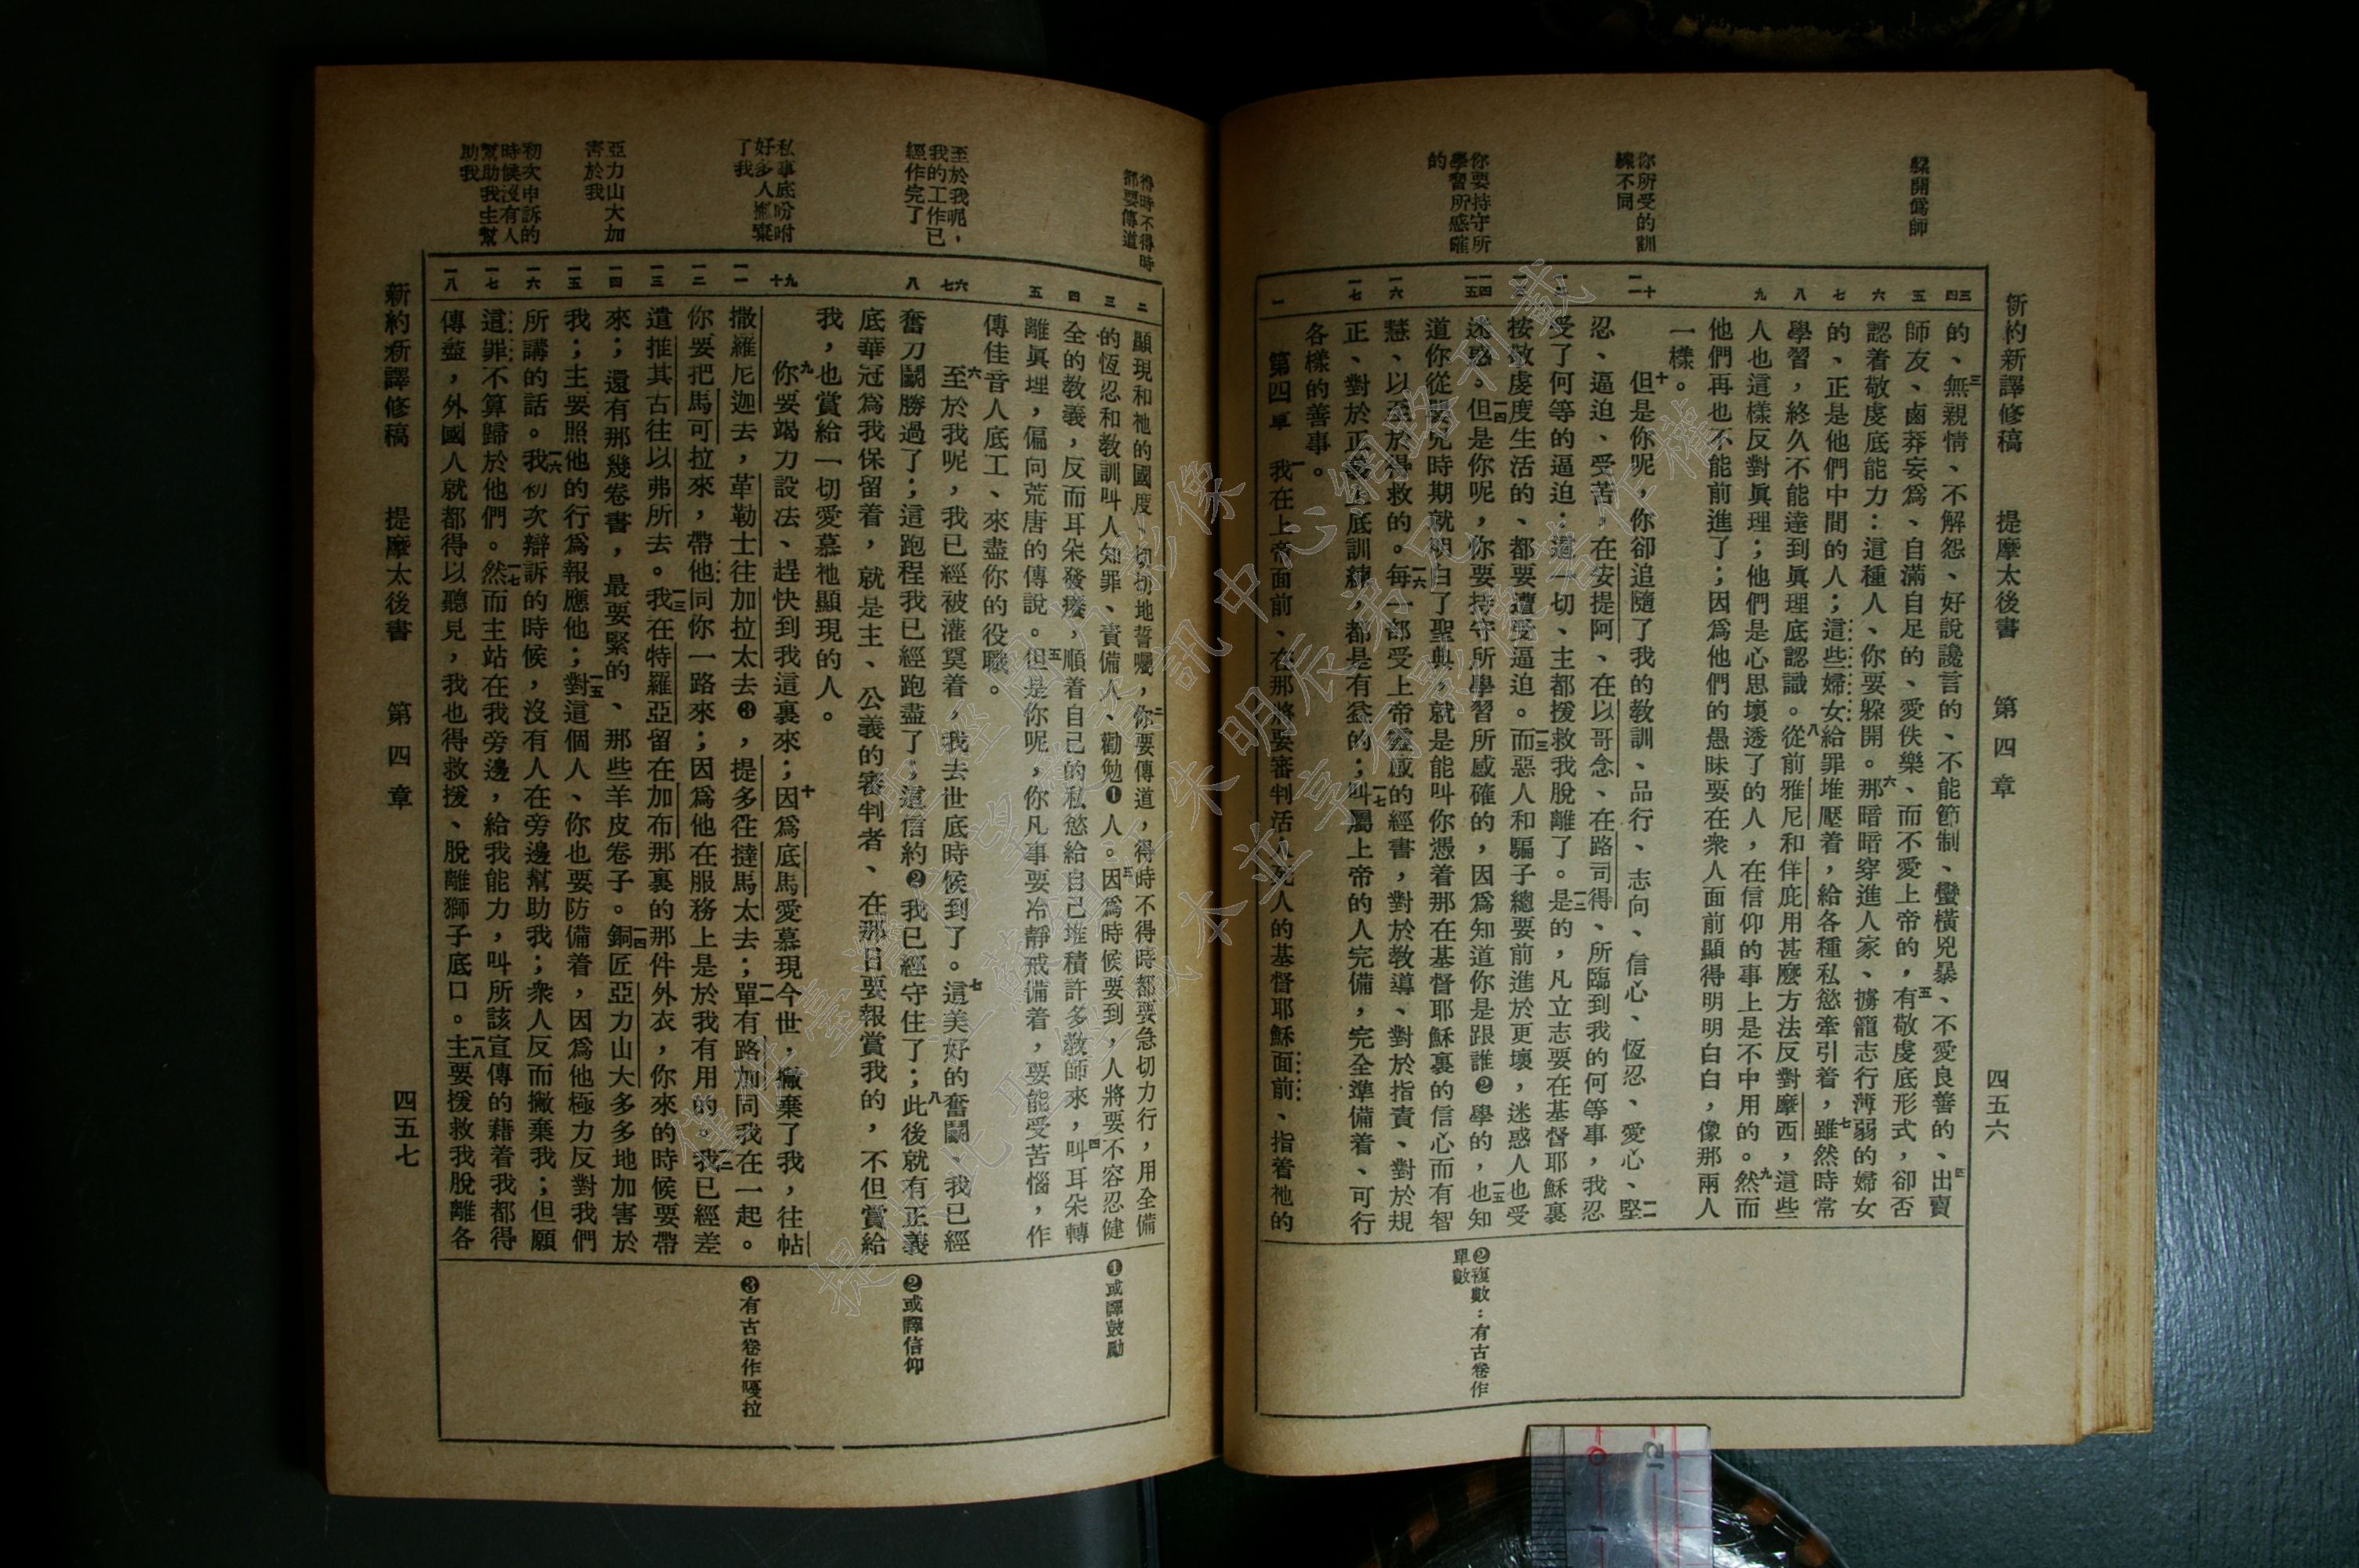 新約新譯修稿 提摩太後書 第四章 四五六
躱開僞師
你所受的訓
練不同
你要持守所
學習所感確
的
三
四
五
六
七
八
九
十
一一
一二
一三
一四
一五
一六
一七
一
的、三無親情、不解怨、好說讒言的、不能節制、蠻橫兇暴、不愛良善的、四出賣
師友、鹵莽妄爲、自滿自足的、愛佚樂、而不愛上帝的，五有敬虔底形式，卻否
認着敬虔底能力：這種人、你要躱開。六那暗暗穿進人家、擄籠志行薄弱的婦女
的、正是他們中間的人；這些婦女給罪堆壓着，給各種私慾牽引着，七雖然時常
學習，終久不能達到眞理底認識。八從前雅尼和佯庇用甚麽方法反對摩西，這些
人也這樣反對眞理；他們是心思壞透了的人，在信仰的事上是不中用的。九然而
他們再也不能前進了；因爲他們的愚昧要在衆人面前顯得明明白白，像那兩人
一樣。
十但是你呢，你卻追隨了我的敎訓、品行、志向、信心、恆忍、愛心、一一堅
忍、逼迫、受苦，在安提阿、在以哥念、在路司得、所臨到我的何等事，我忍
受了何等的逼迫；這一切、主都援救我脫離了。一二是的，凡立志要在基督耶穌裏
按敬虔度生活的、都要遭受逼迫。一三而惡人和騙子總要前進於更壞，迷惑人也受
迷惑。一四但是你呢，你要持守所學習所感確的，因爲知道你是跟誰❷學的，一五也知
道你從嬰兒時期就明白了聖典，就是能叫你憑着那在基督耶穌裏的信心而有智
慧、以至於得救的。一六每一部受上帝靈感的經書，對於敎導、對於指責、對於規
正、對於正義上底訓練，都是有益的；一七叫屬上帝的人完備，完全準備着、可行
各樣的善事。
第四章 一我在上帝面前、在那將要審判活人死人的基督耶穌面前、指着祂的
❷複數：有古卷作
單數
得時不得時
都要傳道
至於我呢，
我的工作已
經作完了
私事底吩咐
好多人撇棄
了我
亞力山大加
害於我
初次申訴的
時候沒有人
幫助我主幫
助我
二
三
四
五
六
七
八
九
十
一一
一二
一三
一四
一五
一六
一七
一八
顯現和祂的國度、切切地誓囑，二你要傳道，得時不得時都要急切力行，用全備
的恆忍和敎訓叫人知罪、責備人、勸勉❶人。三因爲時候要到，人將要不容忍健
全的敎義，反而耳朵發癢，順着自己的私慾給自己堆積許多敎師來，四叫耳朵轉
離眞理，偏向荒唐的傳說。五但是你呢，你凡事要冷靜戒備着，要能受苦惱，作
傳佳音人底工、來盡你的役職。
六至於我呢，我已經被灌奠着，我去世底時候到了。七這美好的奮鬭、我已經
奮力鬭勝過了；這跑程我已經跑盡了；這信約❷我已經守住了；八此後就有正義
底華冠爲我保留着，就是主、公義的審判者、在那日要報賞我的，不但賞給
我，也賞給一切愛慕祂顯現的人。
九你要竭力設法、趕快到我這裏來；十因爲底馬愛慕現今世，撇棄了我，往帖
撒羅尼迦去，革勒士往加拉太去❸，提多往撻馬太去；一一單有路加同我在一起。
你要把馬可拉來，帶他同你一路來；因爲他在服務上是於我有用的。一二我已經差
遣推其古往以弗所去。一三我在特羅亞留在加布那裏的那件外衣，你來的時候要帶
來；還有那幾卷書，最要緊的、那些羊皮卷子。一四銅匠亞力山大多多地加害於
我；主要照他的行爲報應他；一五對這個人、你也要防備着，因爲他極力反對我們
所講的話。一六我初次辯訴的時候，沒有人在旁邊幫助我；衆人反而撇棄我；但願
這罪不算歸於他們。一七然而主站在我旁邊，給我能力，叫所該宣傳的藉着我都得
傳盡，外國人就都得以聽見，我也得救援、脫離獅子底口。一八主要援救我脫離各
❶或譯鼓勵
❷或譯信仰
❸有古卷作嘎拉
新約新譯修稿 提摩太後書 第四章 四五七